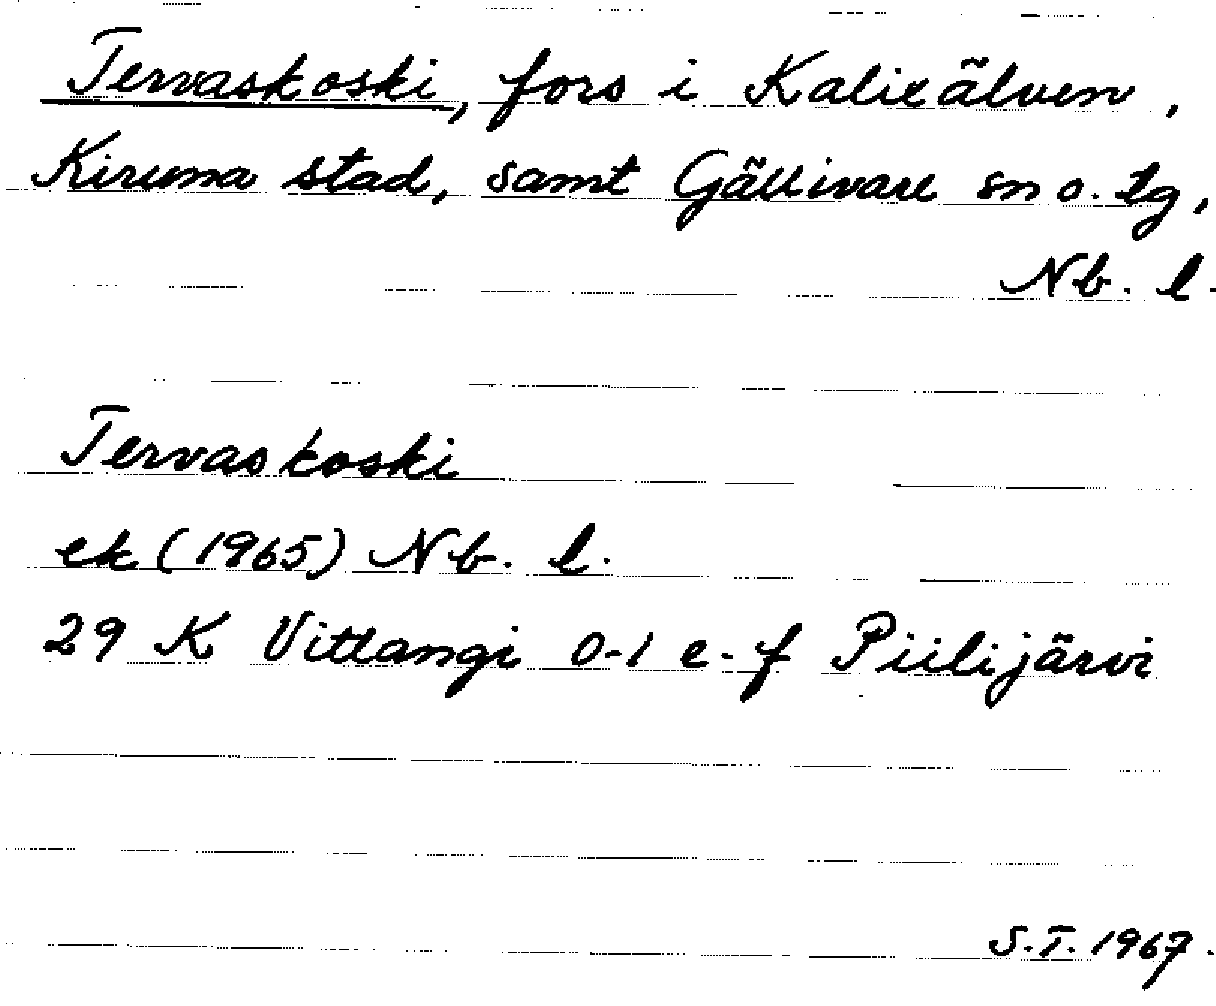 Tervaskoski, fors i Kalixälven,
Kiruna stad, samt Gällivare sn o. tg,
Nb. l.
Tervaskoski
ek (1965) Nb. l.
29 K Vittangi 0-1 e-f Piilijärvi
S.T. 1967.